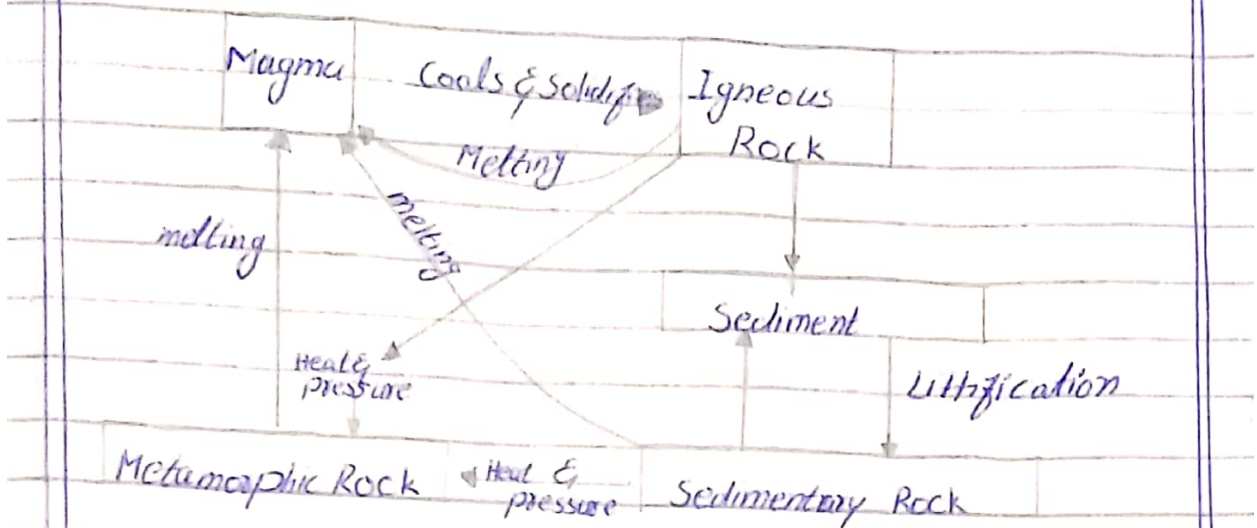 Magma
Cools & Solidify
Igneous
Rock
Melting
melting
melting
Sediment
Heat &
pressure
Lithification
Metamorphic Rock
Heat &
pressure
Sedimentary Rock